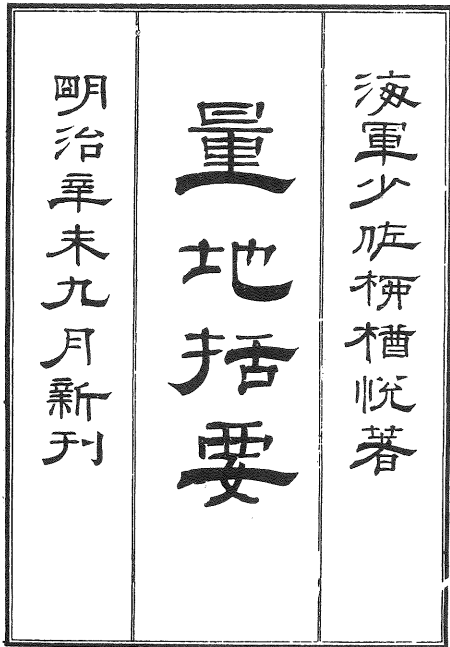 海軍少佐柳楢悦著
量地括要
明治辛未九月新刊